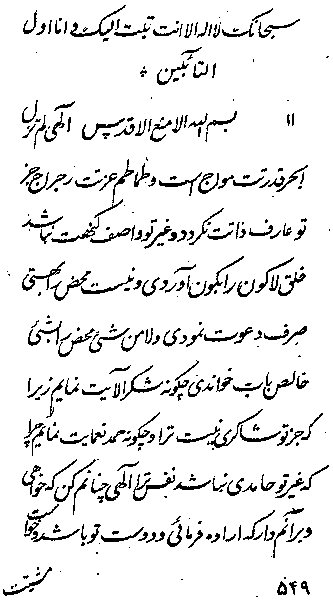 سبحانک لا اله الا انت تبت الیک و انا اول
التائبین *
۱۱ بسم الله الامنع الاقدس الهی لم یزل
ابحر قدرتت مواج است و طماطم عزتت رجراج جز
تو عارف ذاتت نکردد و غیر تو واصف کنهت نباشد
خلق لاکون را بکون آوردی و نیست محض را بهستی
صرف دعوت نمودی و لا من شیء محض را بشیء
خالص باب خواندی چکونه شکر الآیت نمایم زیرا
که جز تو شاکری نیست ترا و چکونه حمد نعمایت نمایم چرا
که غیر تو حامدی نباشد نفس ترا الهی چنانم کن که خواهی
و بر آنم دار که اراده فرمائی و دوست تو باشد و خواست
مشیت
۵۴۹